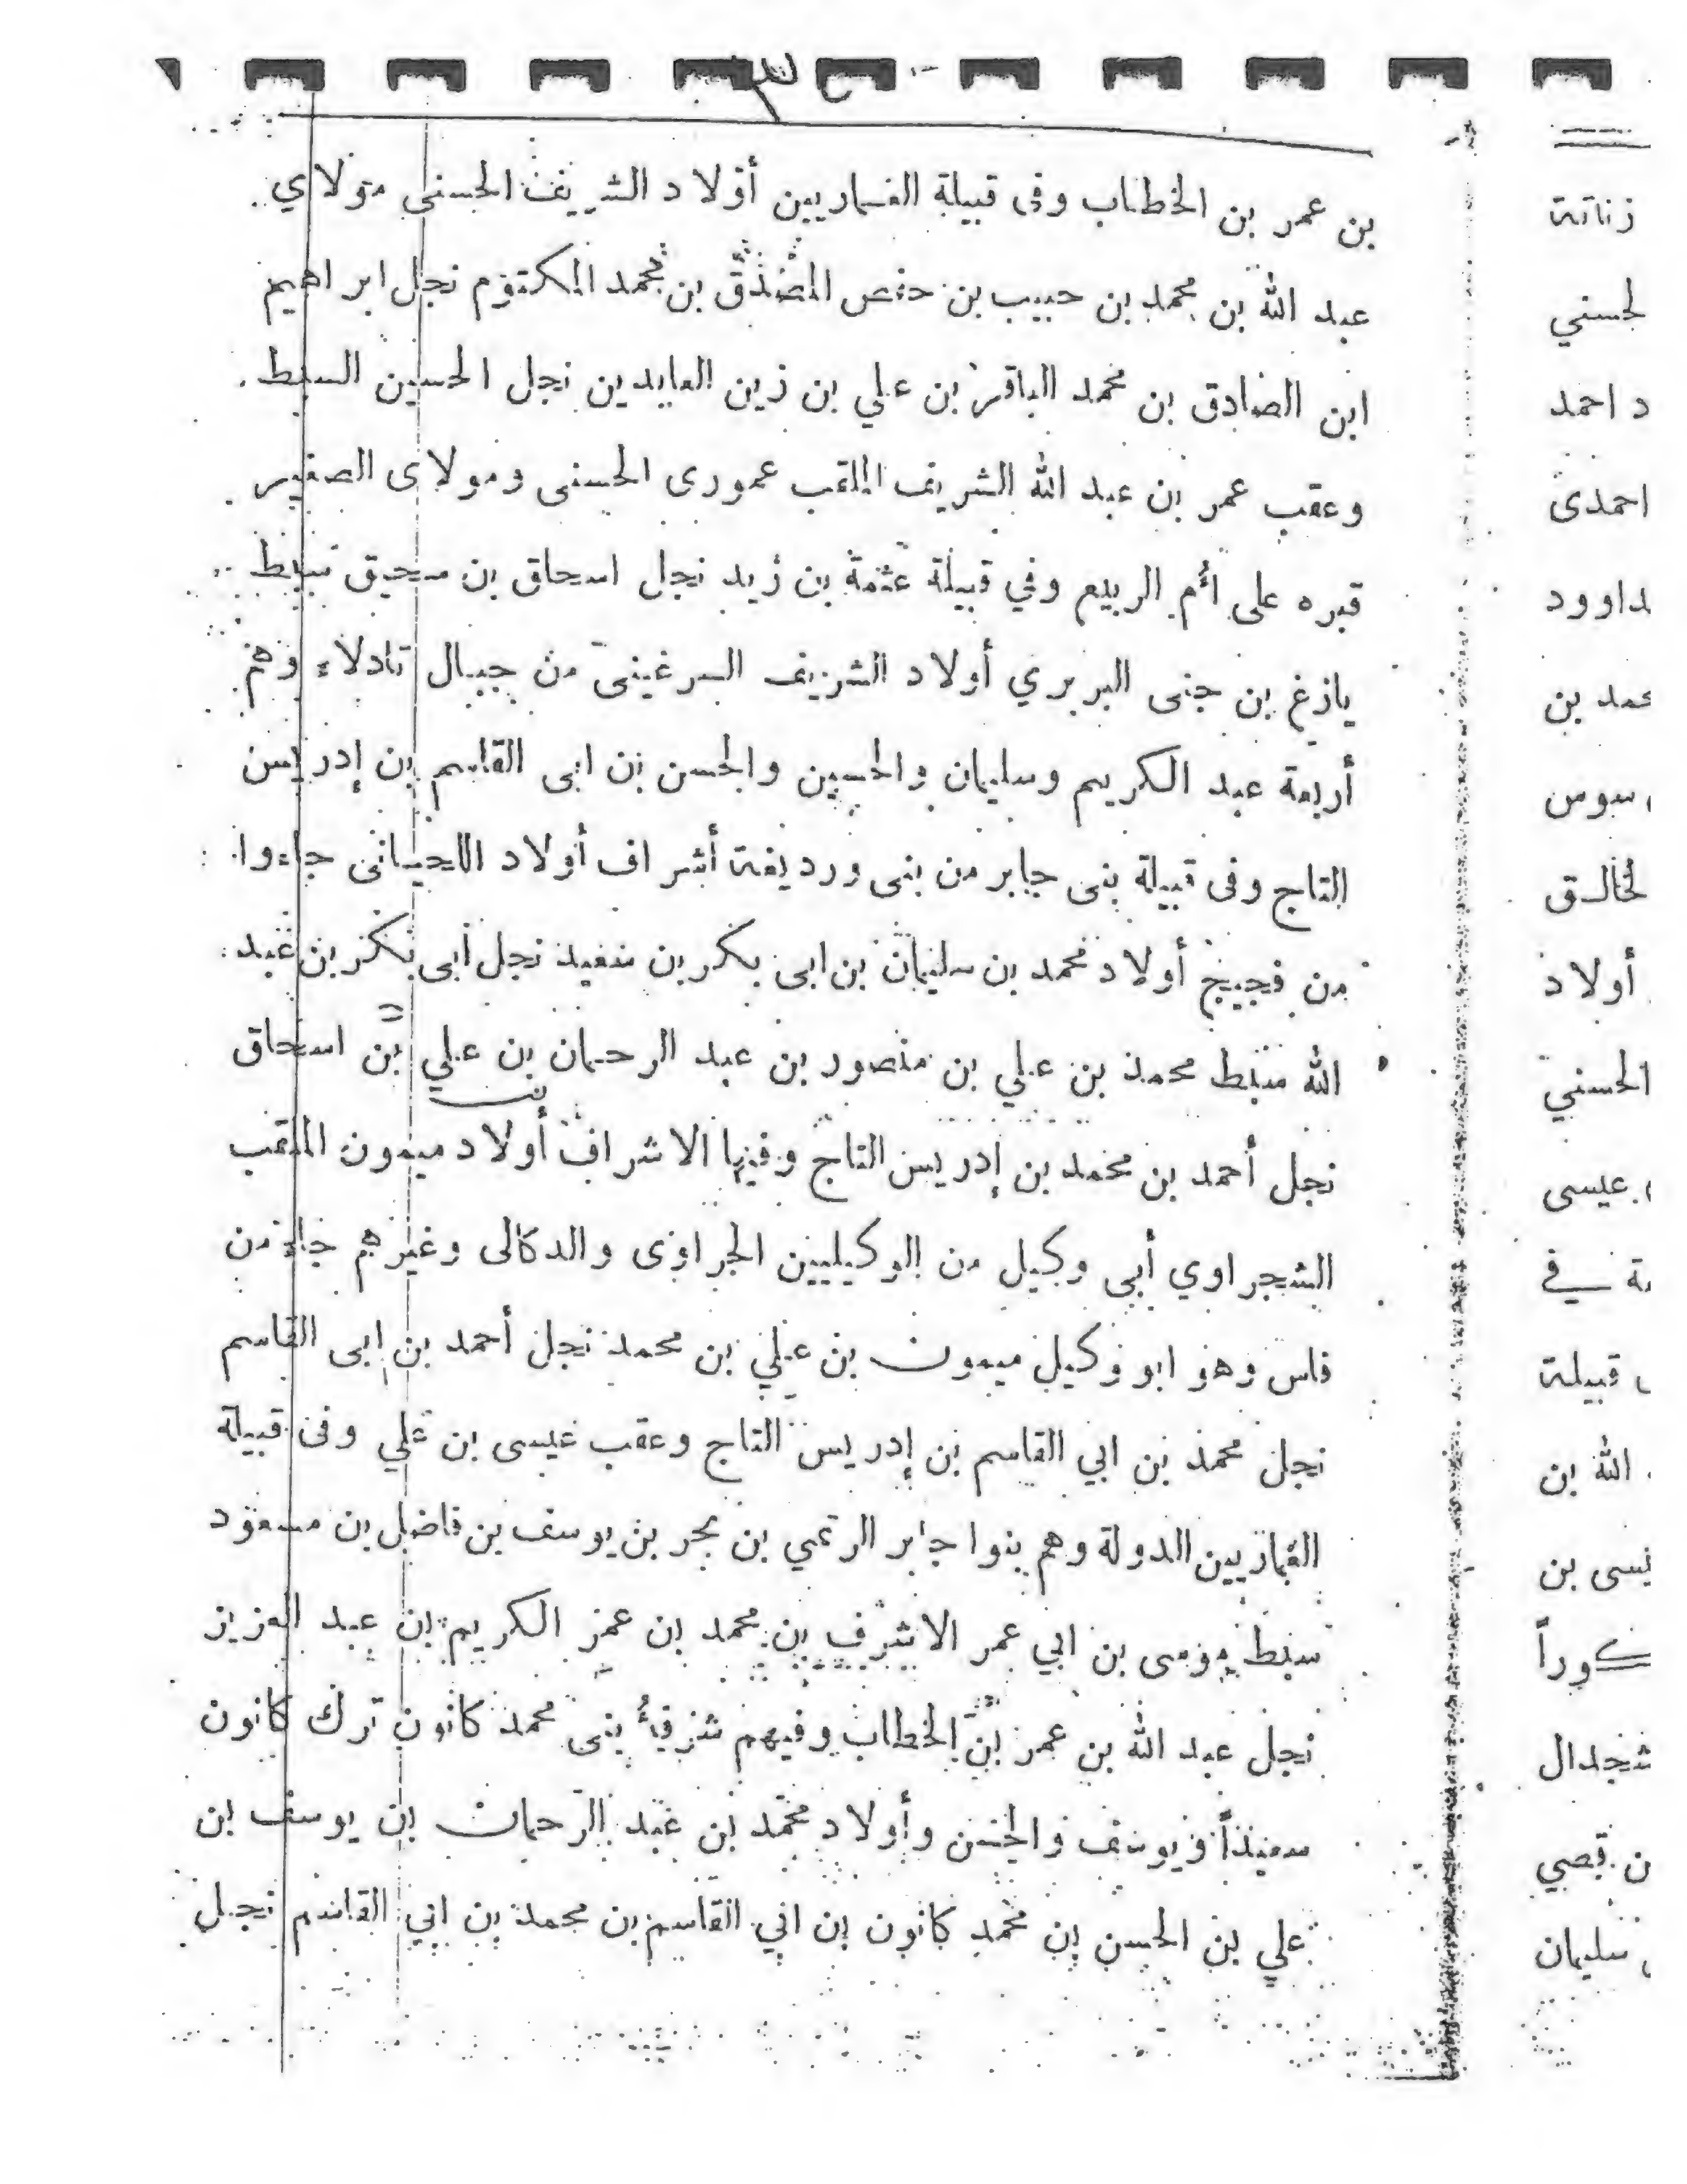 بن عمر بن الخطاب وفى قبيلة الغماريين أولاد الشريف الحسنى مولاي
عبد الله بن محمد بن حبيب بن حفص المصدق بن محمد المكتوم نجل ابراهيم
ابن الصادق بن محمد الباقر بن علي بن زين العابدين نجل الحسين السبط
وعقب عمر بن عبد الله الشريف الملقب عمورى الحسنى ومولاى الصغير
قبره على أم الربيع وفي قبيلة عثمة بن زيد نجل اسحاق بن سحيق سبط
يازغ بن جنى البربري أولاد الشريف السرغينى من جبال تادلاء وهم
أربعة عبد الكريم وسليمان والحسين والحسن بن ابى القاسم بن إدريس
التاج وفى قبيلة بنى جابر من بنى ورديغة أشراف أولاد اللحيانى جاءوا
من فجيج أولاد محمد بن سليمان بن ابى بكر بن سعيد نجل أبى بكر بن عبد
الله سبط محمد بن علي بن منصور بن عبد الرحمان بن علي بن اسحاق
نجل أحمد بن محمد بن إدريس التاج وفيها الاشراف أولاد ميمون الملقب
الشجراوي أبي وكيل من الوكيليين الجراوى والدكالى وغيرهم جاء من
فاس وهو ابو وكيل ميمون بن علي بن محمد نجل أحمد بن ابى القاسم
نجل محمد بن ابي القاسم بن إدريس التاج وعقب عيسى بن علي وفى قبيلة
الغماريين الدولة وهم بنوا جابر الرتمي بن بحر بن يوسف بن فاضل بن مسعود
سبط موسى بن ابي عمر الاشرف بن محمد بن عمر الكريم بن عبد العزيز
نجل عبد الله بن عمر بن الخطاب وفيهم شرفاء بنى محمد كانون ترك كانون
سعيداً ويوسف والحسن وأولاد محمد بن عبد الرحمان بن يوسف بن
علي بن الحسن بن محمد كانون بن ابي القاسم بن محمد بن ابي القاسم نجل
زناتة
لحسني
د احمد
احمدى
داوود
حمد بن
سوس
لخالق
أولاد
الحسني
عيسى
ة في
قبيلة
الله بن
يسى بن
كوراً
شجدال
ن قصي
سليمان